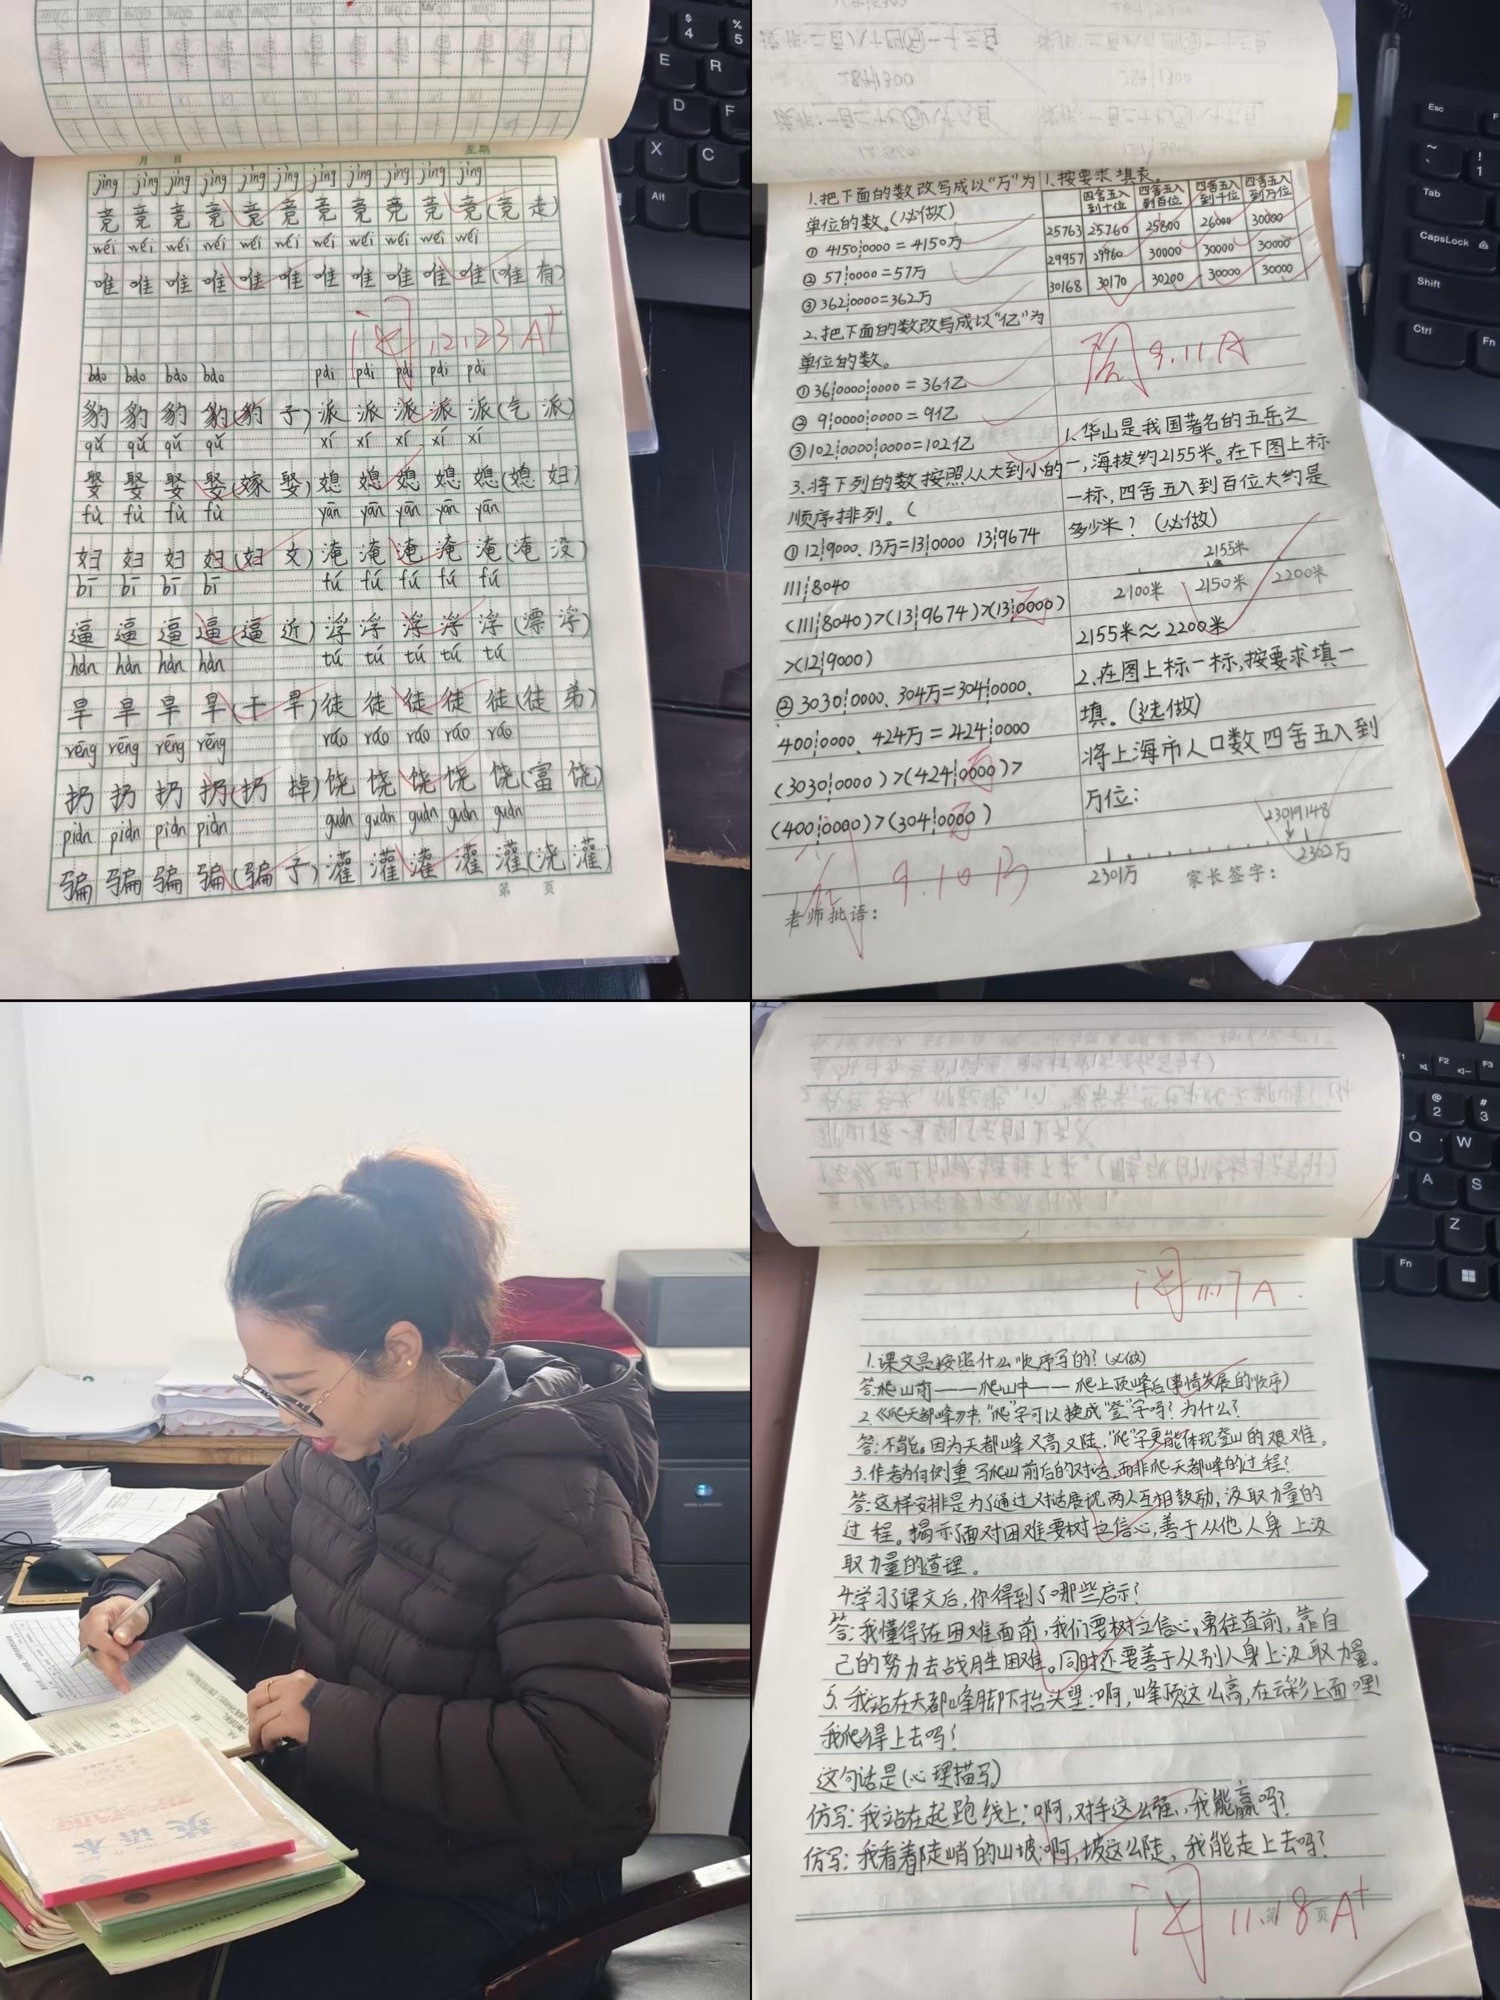 月 日 星期
jìng jìng jìng jìng jìng jìng jìng jìng jìng jìng jìng
竞 竞 竞 竞 竞 竞 竞 竞 竞 竞 竞(竞 走)
wéi wéi wéi wéi wéi wéi wéi wéi wéi wéi wéi
唯 唯 唯 唯 唯 唯 唯 唯 唯 唯 唯(唯 有)
阅 12.23 A+
bào bào bào bào pài pài pài pài pài
豹 豹 豹 豹(豹 子)派 派 派 派 派(气 派)
qǔ qǔ qǔ qǔ xí xí xí xí xí
娶 娶 娶 娶(嫁 娶)媳 媳 媳 媳 媳(媳 妇)
fù fù fù fù yān yān yān yān yān
妇 妇 妇 妇(妇 女)淹 淹 淹 淹 淹(淹 没)
bī bī bī bī fú fú fú fú fú
逼 逼 逼 逼(逼 近)浮 浮 浮 浮 浮(漂 浮)
hàn hàn hàn hàn tú tú tú tú tú
旱 旱 旱 旱(干 旱)徒 徒 徒 徒 徒(徒 弟)
rēng rēng rēng rēng ráo ráo ráo ráo ráo
扔 扔 扔 扔(扔 掉)饶 饶 饶 饶 饶(富 饶)
piàn piàn piàn piàn guàn guàn guàn guàn guàn
骗 骗 骗 骗(骗 子)灌 灌 灌 灌 灌(浇 灌)
第 页
1.把下面的数改写成以“万”为
单位的数。(必做)
① 4150¦0000=4150万
② 57¦0000=57万
③ 362¦0000=362万
2.把下面的数改写成以“亿”为
单位的数。
① 36¦0000¦0000=36亿
② 9¦0000¦0000=9亿
③ 102¦0000¦0000=102亿
3.将下列的数按照从大到小的
顺序排列。(
① 12¦9000、13万=13¦0000 13¦9674
111¦8040
(111¦8040)>(13¦9674)>(13¦0000)
>(12¦9000)
② 3030¦0000、304万=304¦0000、
400¦0000、424万=424¦0000
(3030¦0000)>(424¦0000)>
(400¦0000)>(304¦0000)
阅 9.10 B
老师批语:
1.按要求填表。
四舍五入到十位 四舍五入到百位 四舍五入到千位 四舍五入到万位
25763 25760 25800 26000 30000
29957 29960 30000 30000 30000
30168 30170 30200 30000 30000
阅 9.11 A
1.华山是我国著名的五岳之
一,海拔约2155米。在下图上标
一标,四舍五入到百位大约是
多少米?(必做)
2155米
2100米 2150米 2200米
2155米≈2200米
2.在图上标一标,按要求填一
填。(选做)
将上海市人口数四舍五入到
万位:
23019148
2301万 2302万
家长签字:
英语本
阅 11.17 A
1.课文是按照什么顺序写的?(必做)
答:爬山前——爬山中——爬上顶峰后(事情发展的顺序)
2.《爬天都峰》中,“爬”字可以换成“登”字吗?为什么?
答:不能。因为天都峰又高又陡,“爬”字更能体现登山的艰难。
3.作者为何侧重写爬山前后的对话,而非爬天都峰的过程?
答:这样安排是为了通过对话展现两人互相鼓励,汲取力量的
过程。揭示了面对困难要树立信心,善于从他人身上汲
取力量的道理。
4.学习了课文后,你得到了哪些启示?
答:我懂得在困难面前,我们要树立信心,勇往直前,靠自
己的努力去战胜困难。同时还要善于从别人身上汲取力量。
5.我站在天都峰脚下抬头望:啊,峰顶这么高,在云彩上面哩!
我爬得上去吗?
这句话是(心理描写)
仿写:我站在起跑线上:啊,对手这么强,我能赢吗?
仿写:我看着陡峭的山坡:啊,坡这么陡,我能走上去吗?
阅 11.18 A+
第 页